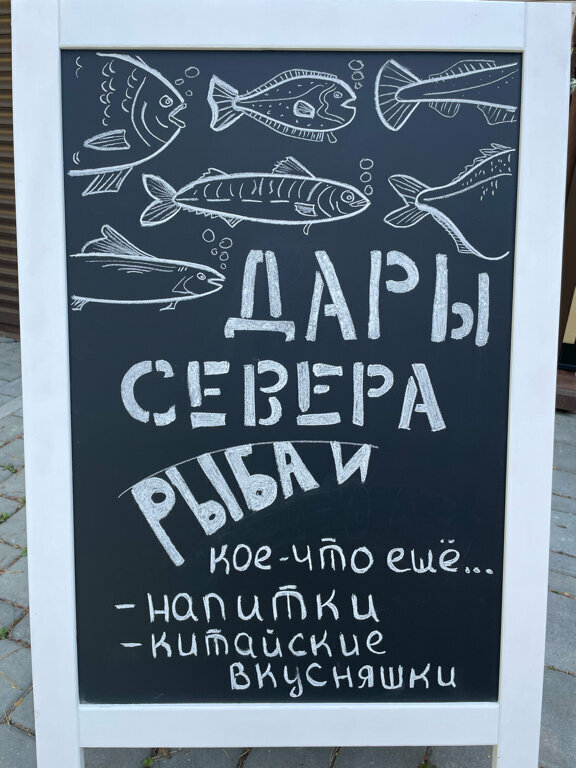 ДАРЫ
СЕВЕРА
РЫБА И
кое-что ещё...
- напитки
- китайские
вкусняшки